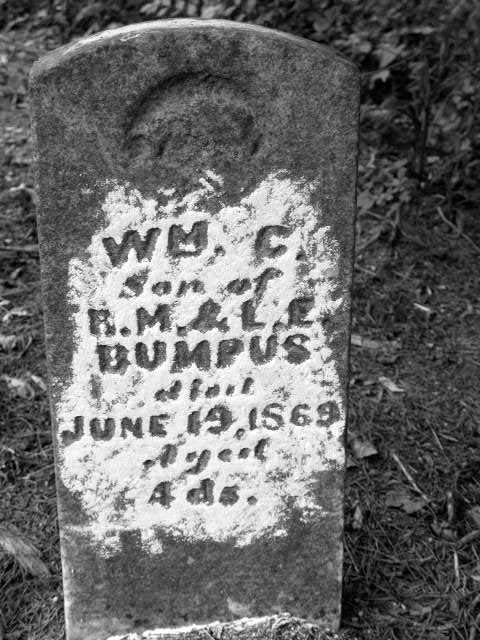 WM. C.
Son of
R. M. & L. E.
BUMPUS
died
JUNE 19, 1869
Aged
4 ds.